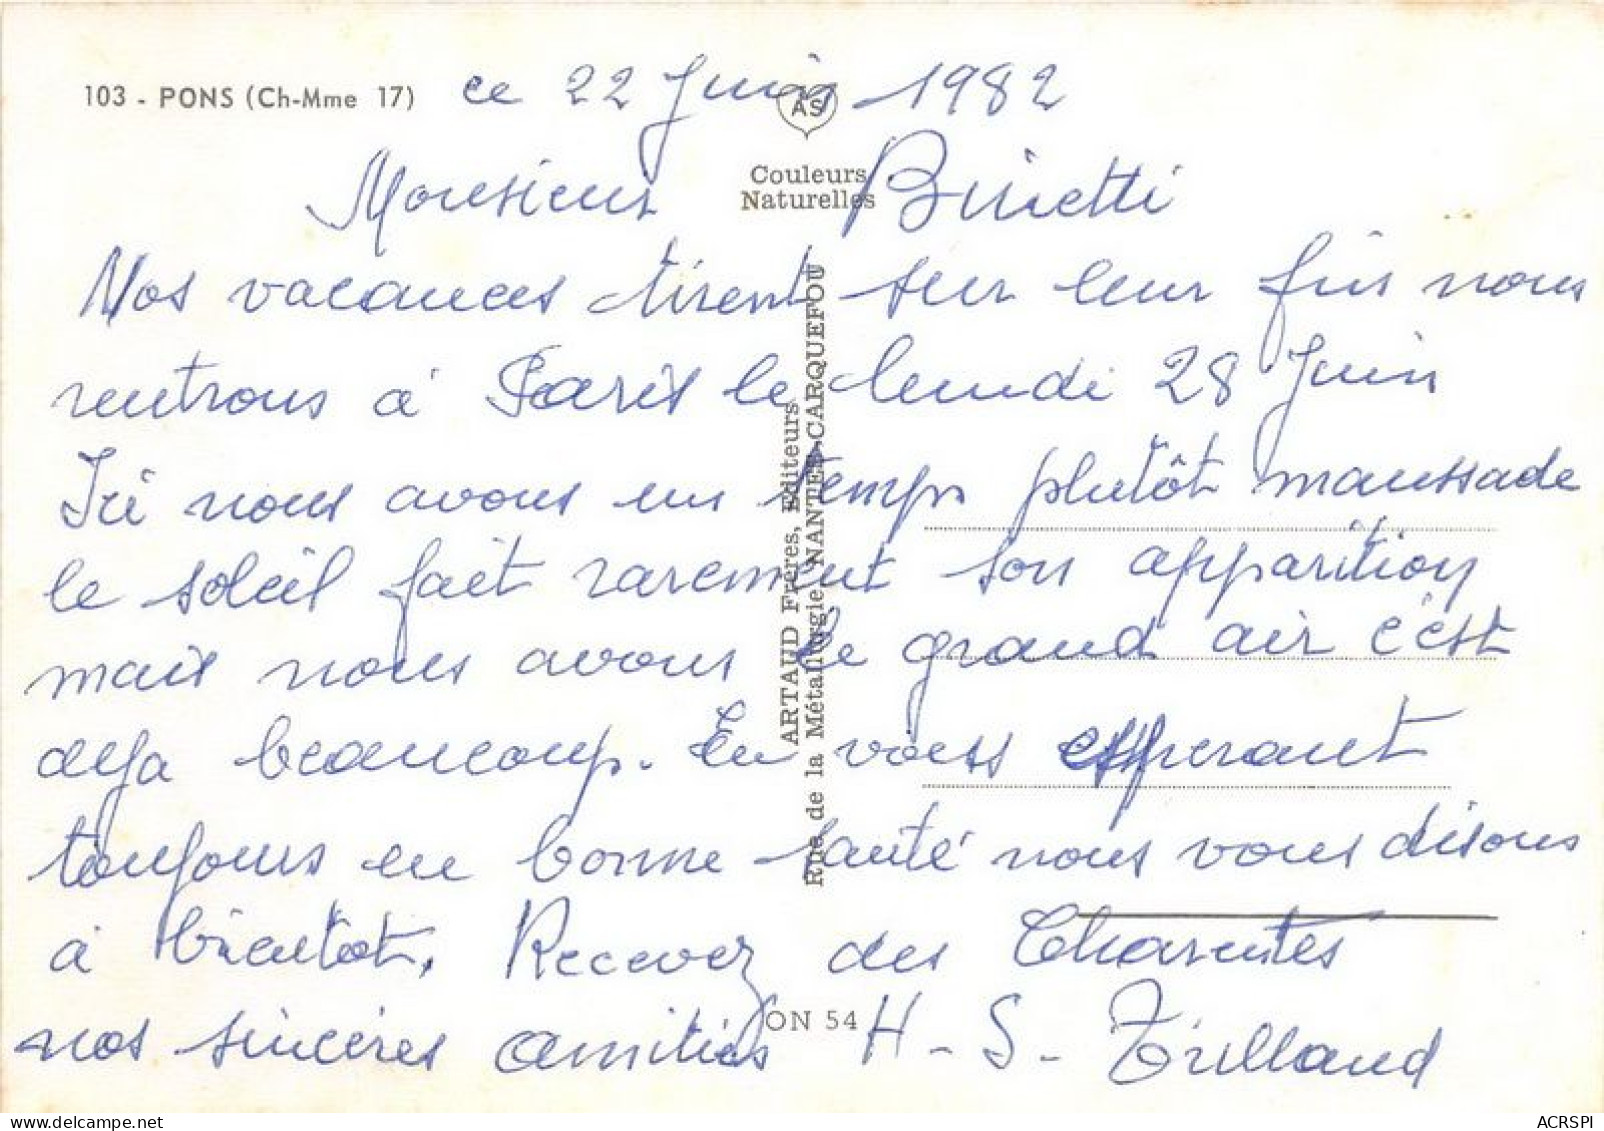 103 - PONS (Ch-Mme 17) ce 22 Juin 1982
AS
Couleurs
Naturelles
Monsieur Binetti
Nos vacances tirent sur leur fin nous
rentrons à Paris le lundi 28 Juin
Ici nous avons un temps plutôt maussade
le soleil fait rarement son apparition
mais nous avons le grand air c'est
deja beaucoup. En vous esperant
toujours en bonne santé nous vous disons
à bientot. Recevez des Charentes
nos sincères amitiés H - S -
ARTAUD Frères, Editeurs
Rue de la Métallurgie, NANTES-CARQUEFOU
ON 54
ACRSPI